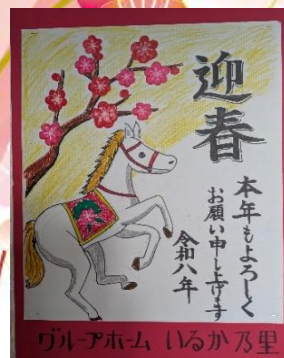 迎春
本年もよろしく
お願い申し上げます
令和八年
グループホーム いるか乃里